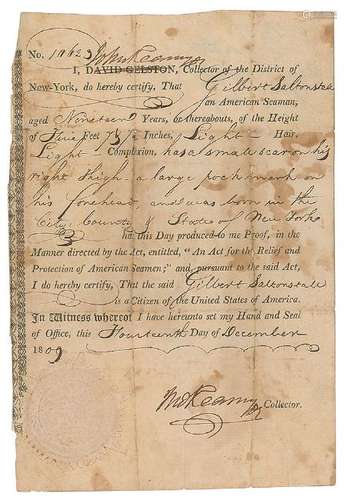 No. 
I, DAVID GELSTON, Collector of the District of
New-York, do hereby certify, That Gilbert Saltonstall
an American Seaman,
aged Nineteen Years, or thereabouts, of the Height
of Five Feet Inches, Light Hair,
Light Complexion, has a small scar on his
right thigh a large pock mark on
his forehead, and was born in the
City County & State of New York
hath this Day produced to me Proof, in the
Manner directed by the Act, entitled, "An Act for the Relief and
Protection of American Seamen;" and, pursuant to the said Act,
I do hereby certify, That the said Gilbert Saltonstall
is a Citizen of the United States of America.
In Witness whereof I have hereunto set my Hand and Seal
of Office, this Fourteenth Day of December
1809
Collector.